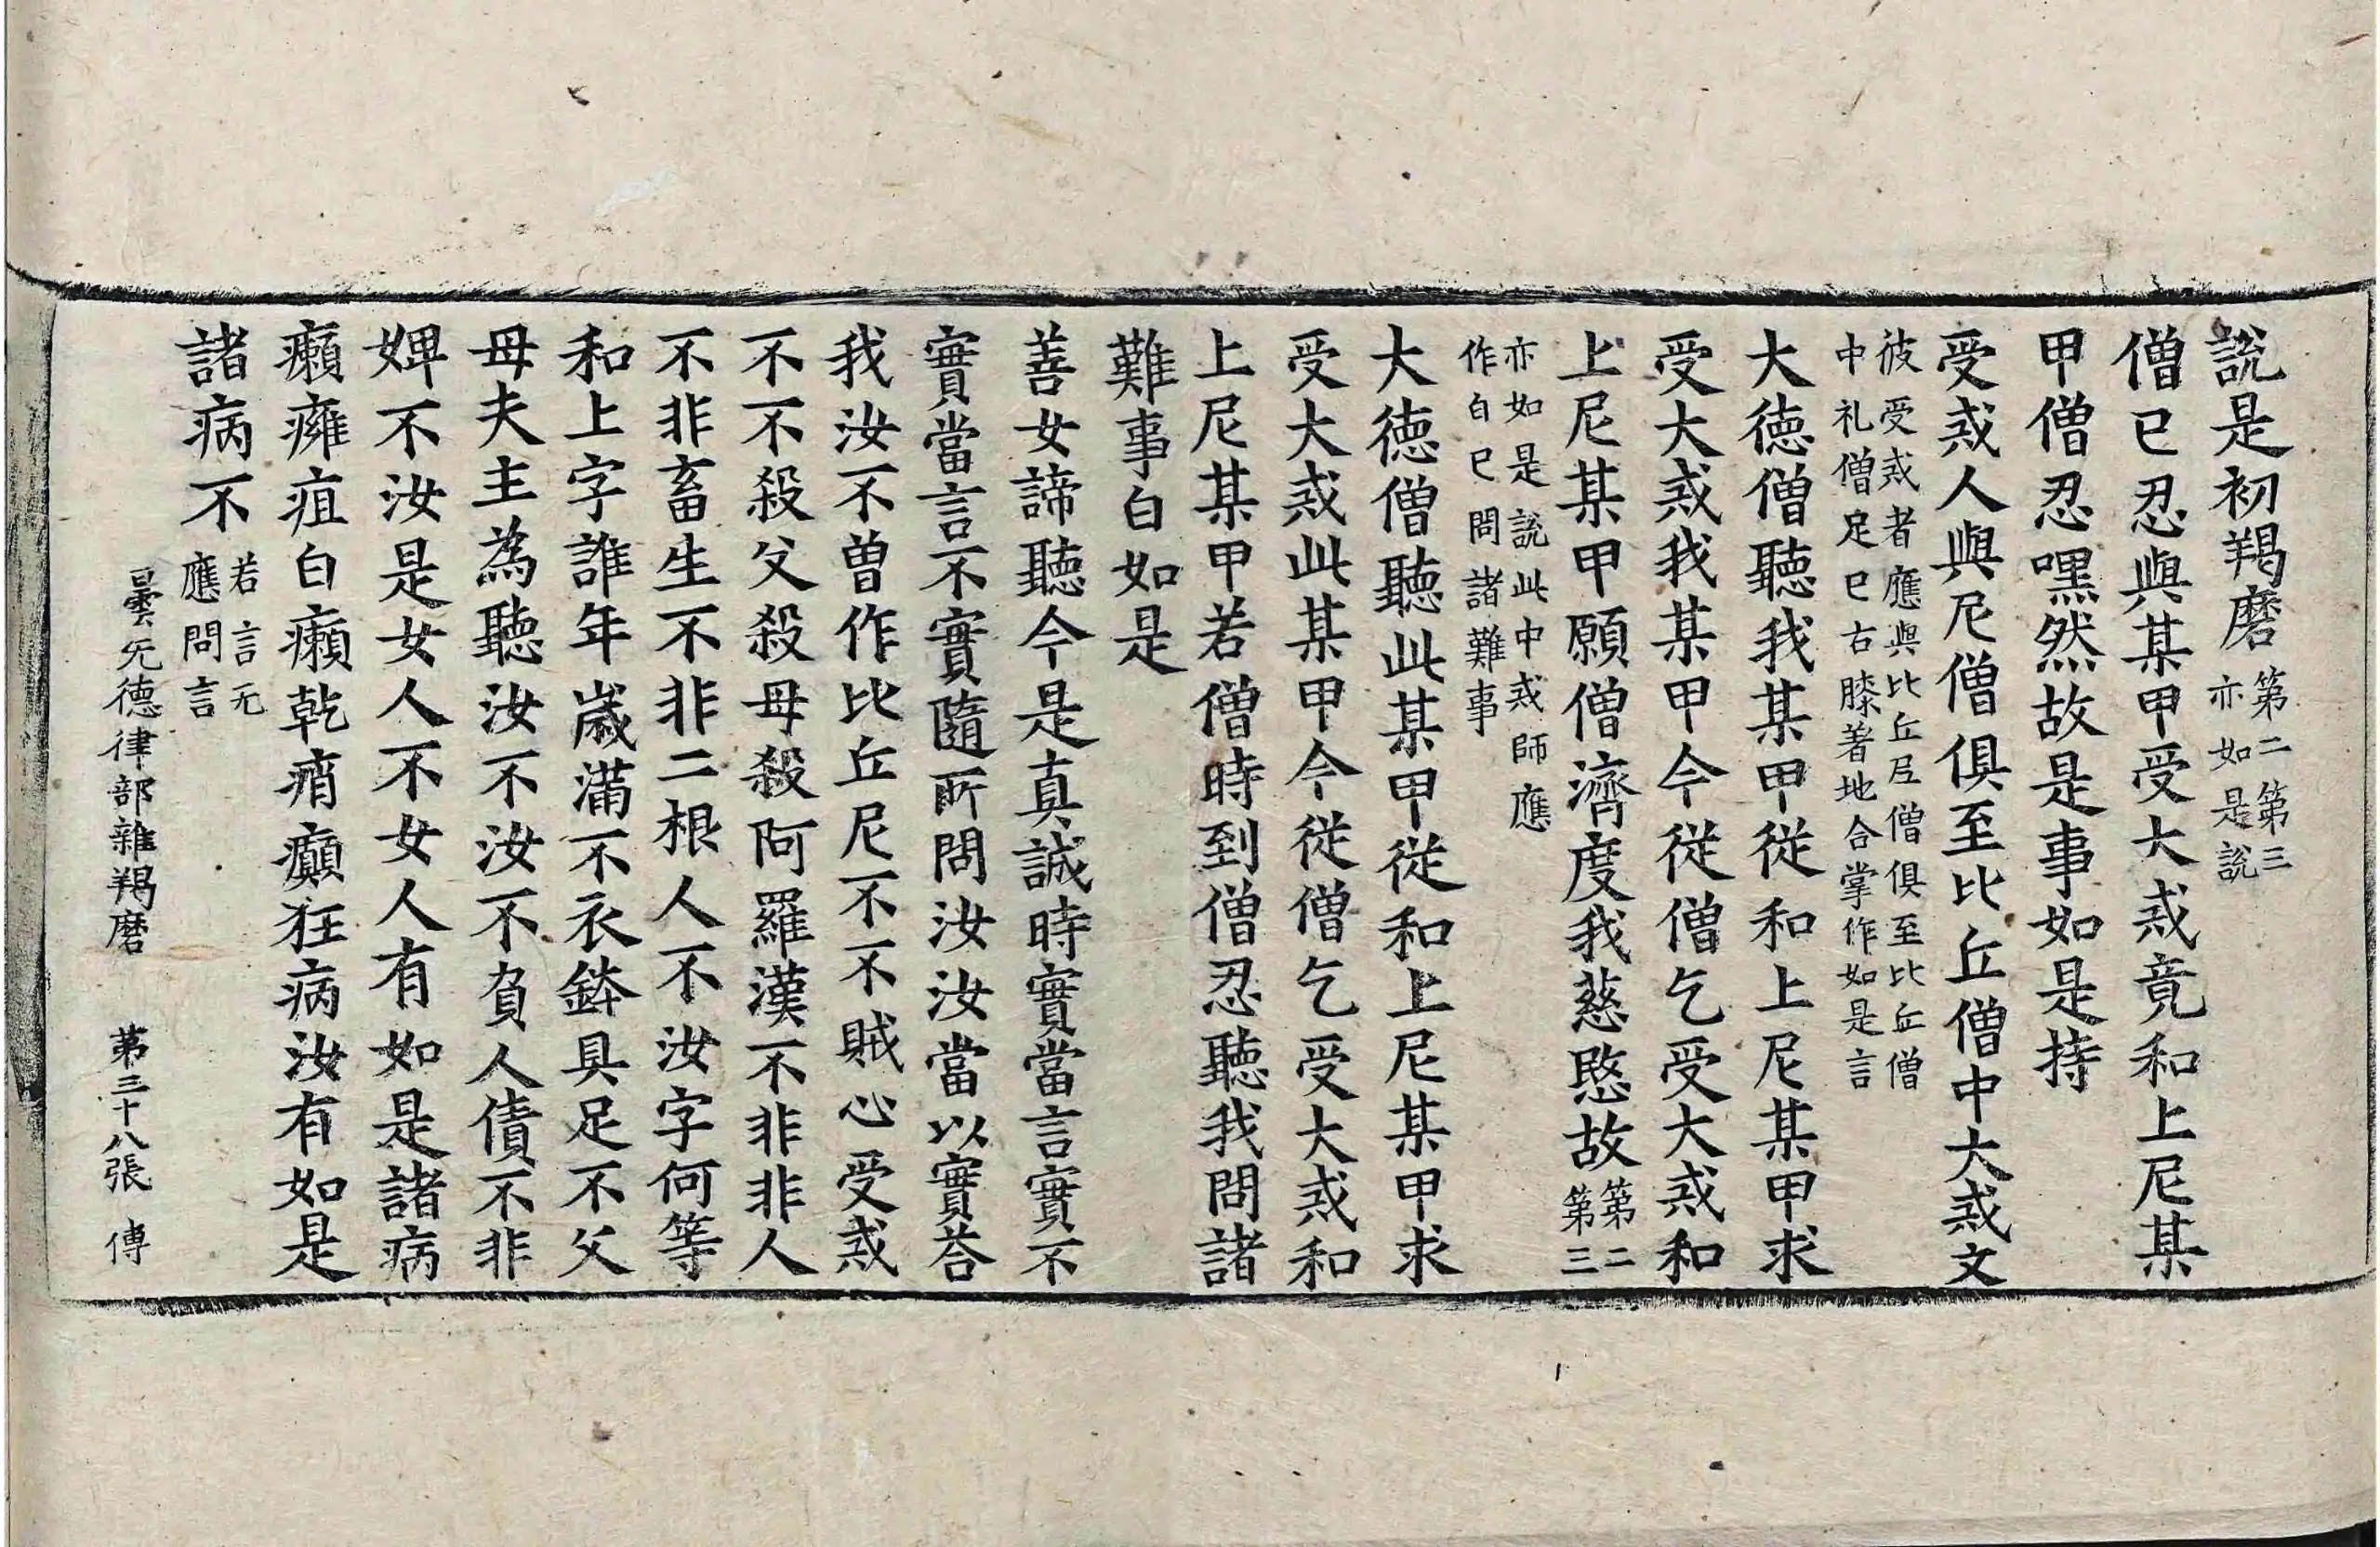 說是初羯磨第二第三亦如是說
僧已忍與某甲受大戒竟和上尼某
甲僧忍嘿然故是事如是持
受戒人與尼僧俱至比丘僧中大戒文
彼受戒者應與比丘尼僧俱至比丘僧
中礼僧足已右膝著地合掌作如是言
大德僧聽我某甲從和上尼某甲求
受大戒我某甲今從僧乞受大戒和
上尼某甲願僧濟度我慈愍故第二第三
亦如是說此中戒師應
作白已問諸難事
大德僧聽此某甲從和上尼某甲求
受大戒此某甲今從僧乞受大戒和
上尼某甲若僧時到僧忍聽我問諸
難事白如是
善女諦聽今是真誠時實當言實不
實當言不實隨所問汝汝當以實荅
我汝不曾作比丘尼不不賊心受戒
不不殺父殺母殺阿羅漢不非非人
不非畜生不非二根人不汝字何等
和上字誰年歲滿不衣鉢具足不父
母夫主為聽汝不汝不負人債不非
婢不汝是女人不女人有如是諸病
癩癰疽白癩乾痟癲狂病汝有如是
諸病不若言无應問言
曇无德律部雜羯磨 第三十八張 傳